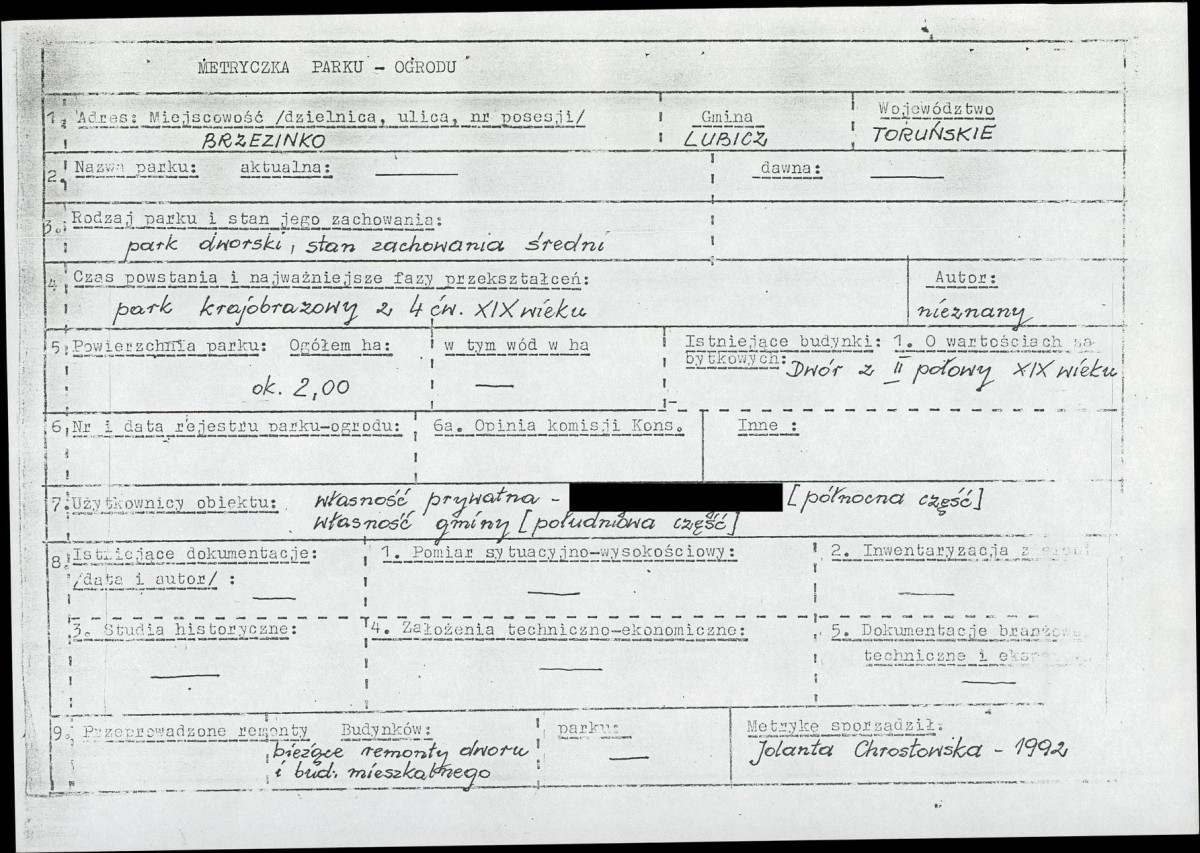 METRYCZKA PARKU - OGRODU
1. Adres: Miejscowość /dzielnica, ulica, nr posesji/
BRZEZINKO
Gmina
LUBICZ
Województwo
TORUŃSKIE
2. Nazwa parku: aktualna: ——
dawna: ——
3. Rodzaj parku i stan jego zachowania:
park dworski, stan zachowania średni
4. Czas powstania i najważniejsze fazy przekształceń:
park krajobrazowy z 4 ćw. XIX wieku
Autor:
nieznany
5. Powierzchnia parku: Ogółem ha:
ok. 2,00
w tym wód w ha
—
Istniejące budynki: 1. O wartościach za-
bytkowych: Dwór z II połowy XIX wieku
6. Nr i data rejestru parku-ogrodu:
6a. Opinia komisji Kons.
Inne :
7. Użytkownicy obiektu: własność prywatna - [północna część]
własność gminy [południowa część]
8. Istniejące dokumentacje:
/data i autor/ : —
1. Pomiar sytuacyjno-wysokościowy:
—
2. Inwentaryzacja z
—
3. Studia historyczne:
—
4. Założenia techniczno-ekonomiczne:
—
5. Dokumentacje branżowe
techniczne i
—
9. Przeprowadzone remonty Budynków:
bieżące remonty dworu
i bud. mieszkalnego
parku:
—
Metrykę sporządził:
Jolanta Chrostowska - 1992